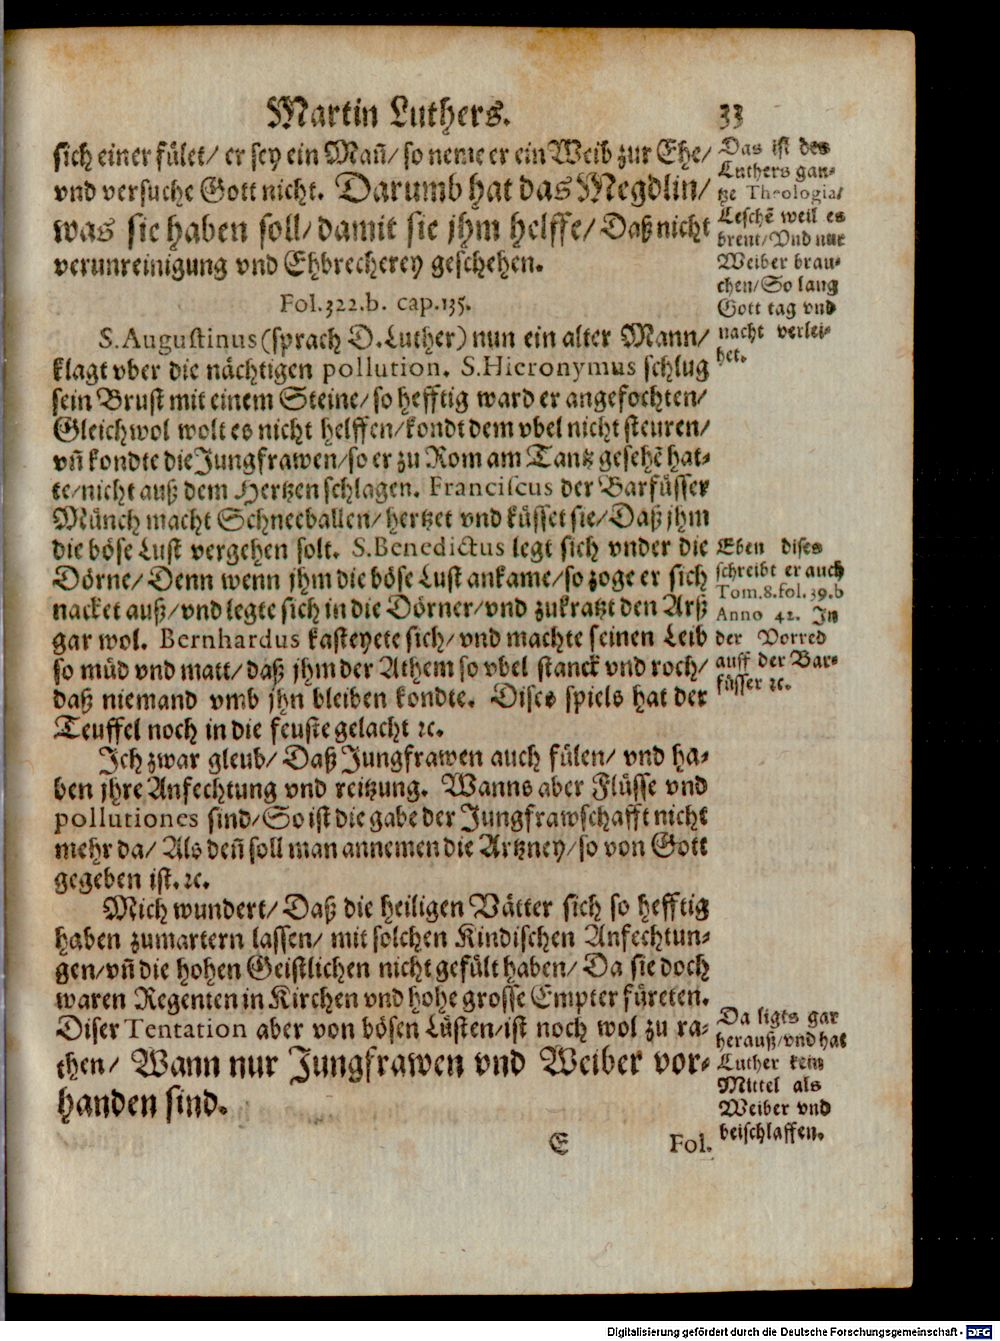 Martin Luthers. 33
sich einer fület/ er sey ein Mañ/ so neme er ein Weib zur Ehe/
vnd versuche Gott nicht. Darumb hat das Megdlin/
was sie haben soll/ damit sie jhm helffe/ Daß nicht
verunreinigung vnd Ehbrecherey geschehen.
Das ist des
Luthers gan-
tze Theologia/
Leschē weil es
brent/ Vnd nur
Weiber brau-
chen/ So lang
Gott tag vnd
nacht verlei-
het.
Fol. 322. b. cap. 135.
S. Augustinus (sprach D. Luther) nun ein alter Mann/
klagt vber die nächtigen pollution. S. Hieronymus schlug
sein Brust mit einem Steine/ so hefftig ward er angefochten/
Gleichwol wolt es nicht helffen/ kondt dem vbel nicht steuren/
vñ kondte die Jungfrawen/ so er zu Rom am Tantz gesehē hat-
te/ nicht auß dem Hertzen schlagen. Franciscus der Barfüsser
Münch macht Schneeballen/ hertzet vnd küsset sie/ Daß jhm
die böse Lust vergehen solt. S. Benedictus legt sich vnder die
Dörne/ Denn wenn jhm die böse Lust ankame/ so zoge er sich
nacket auß/ vnd legte sich in die Dörner/ vnd zukratzt den Arß
gar wol. Bernhardus kasteyete sich/ vnd machte seinen Leib
so müd vnd matt/ daß jhm der Athem so vbel stanck vnd roch/
daß niemand vmb jhn bleiben kondte. Dises spiels hat der
Teuffel noch in die feuste gelacht ꝛc.
Eben dises
schreibt er auch
Tom. 8. fol. 39. b
Anno 42. In
der Vorred
auff der Bar-
füsser ꝛc.
Ich zwar gleub/ Daß Jungfrawen auch fülen/ vnd ha-
ben jhre Anfechtung vnd reitzung. Wanns aber Flüsse vnd
pollutiones sind/ So ist die gabe der Jungfrawschafft nicht
mehr da/ Als deñ soll man annemen die Artzney/ so von Gott
gegeben ist. ꝛc.
Mich wundert/ Daß die heiligen Vätter sich so hefftig
haben zumartern lassen/ mit solchen Kindischen Anfechtun-
gen/ vñ die hohen Geistlichen nicht gefült haben/ Da sie doch
waren Regenten in Kirchen vnd hohe grosse Empter füreten.
Diser Tentation aber von bösen Lüsten/ ist noch wol zu ra-
then/ Wann nur Jungfrawen vnd Weiber vor-
handen sind.
Da ligts gar
herauß/ vnd hat
Luther kein
Mittel als
Weiber vnd
beischlaffen.
E Fol.
Digitalisierung gefördert durch die Deutsche Forschungsgemeinschaft - DFG